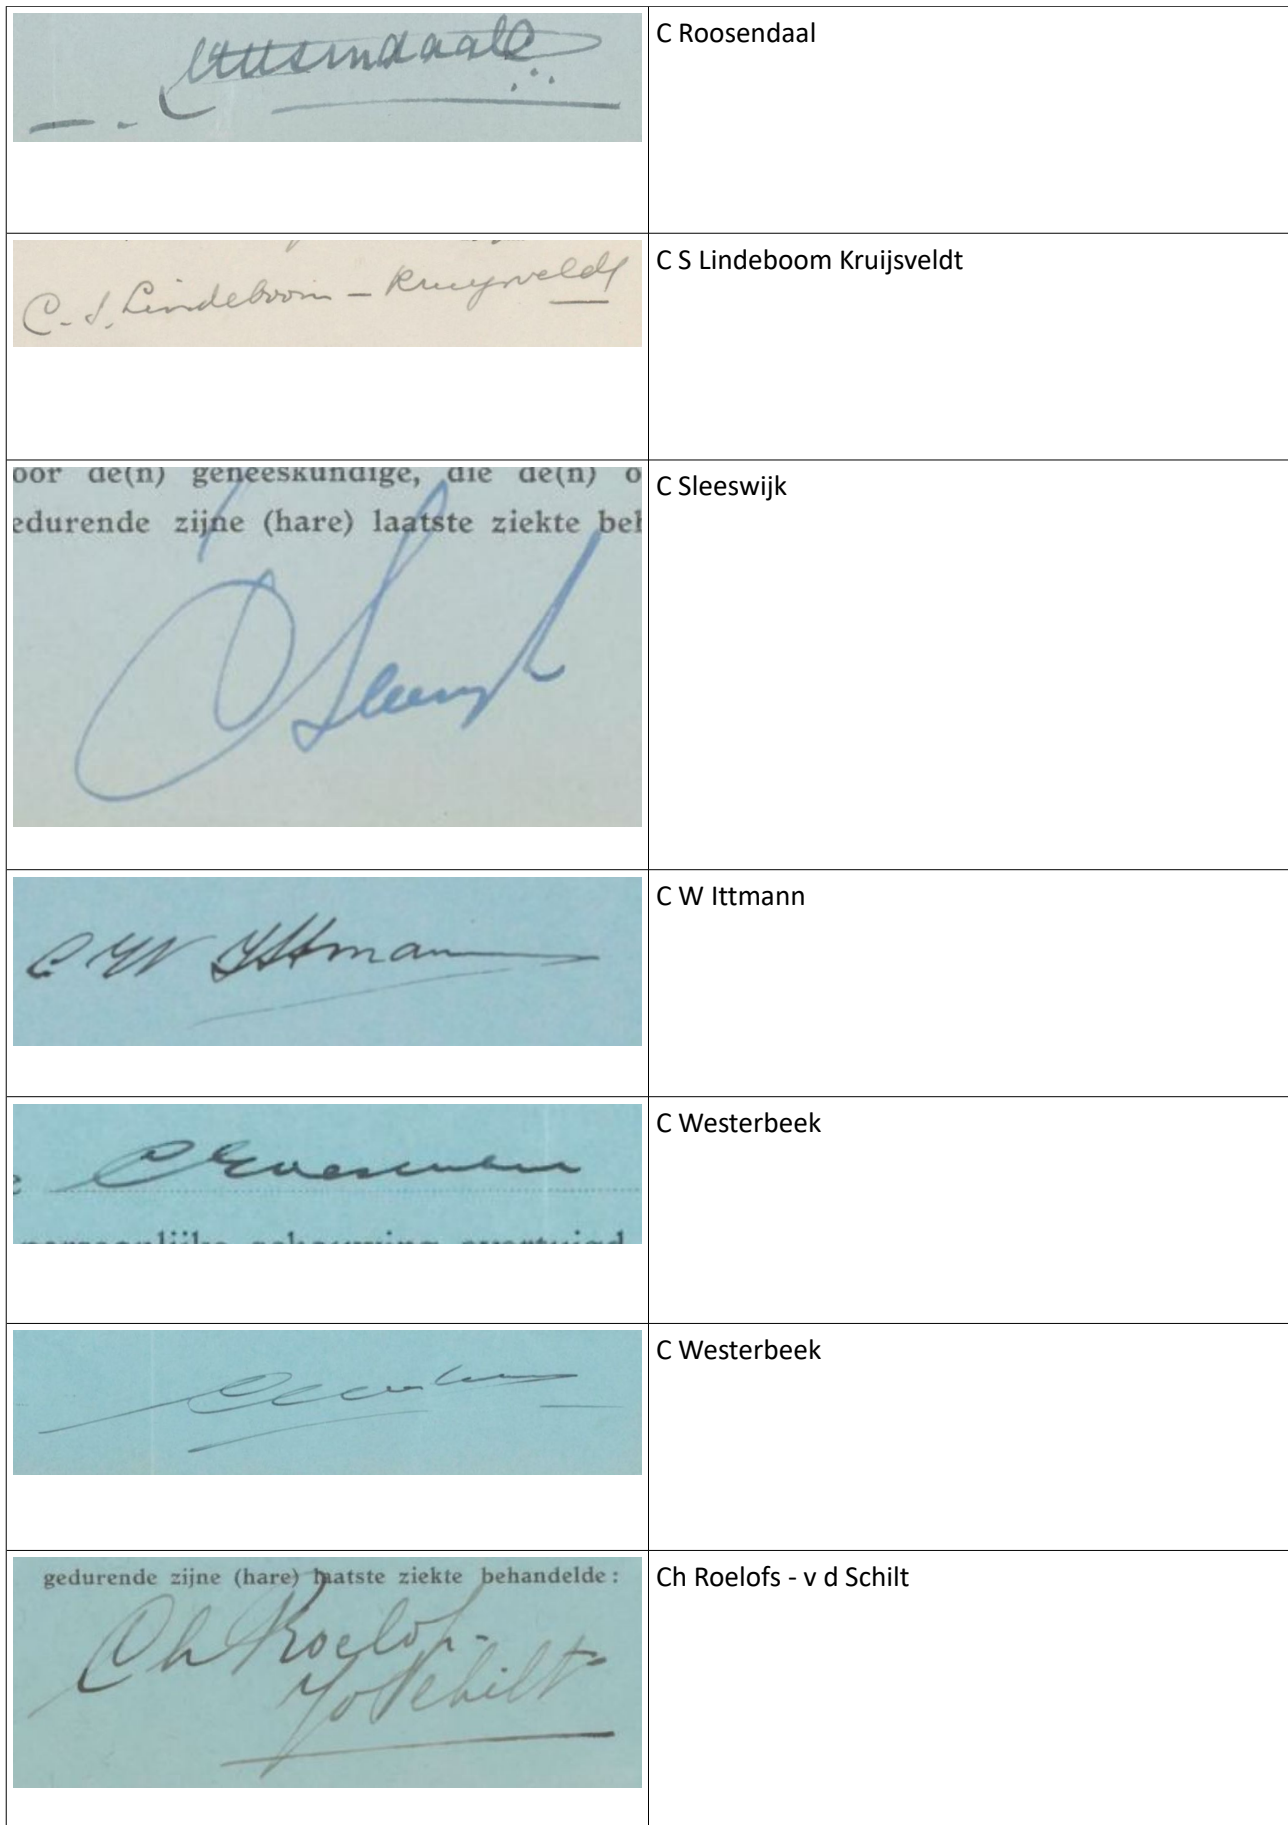 C Roosendaal
C. S. Lindeboom - Kruysveldt
C S Lindeboom Kruijsveldt
oor de(n) geneeskundige, die de(n) o
edurende zijne (hare) laatste ziekte beh
C Sleeswijk
C Sleeswijk
C W Ittmann
C W Ittmann
C Westerbeek
persoonlijke schouwing overtuigd
C Westerbeek
gedurende zijne (hare) laatste ziekte behandelde:
Ch Roelofs-
vd Schilt
Ch Roelofs - v d Schilt